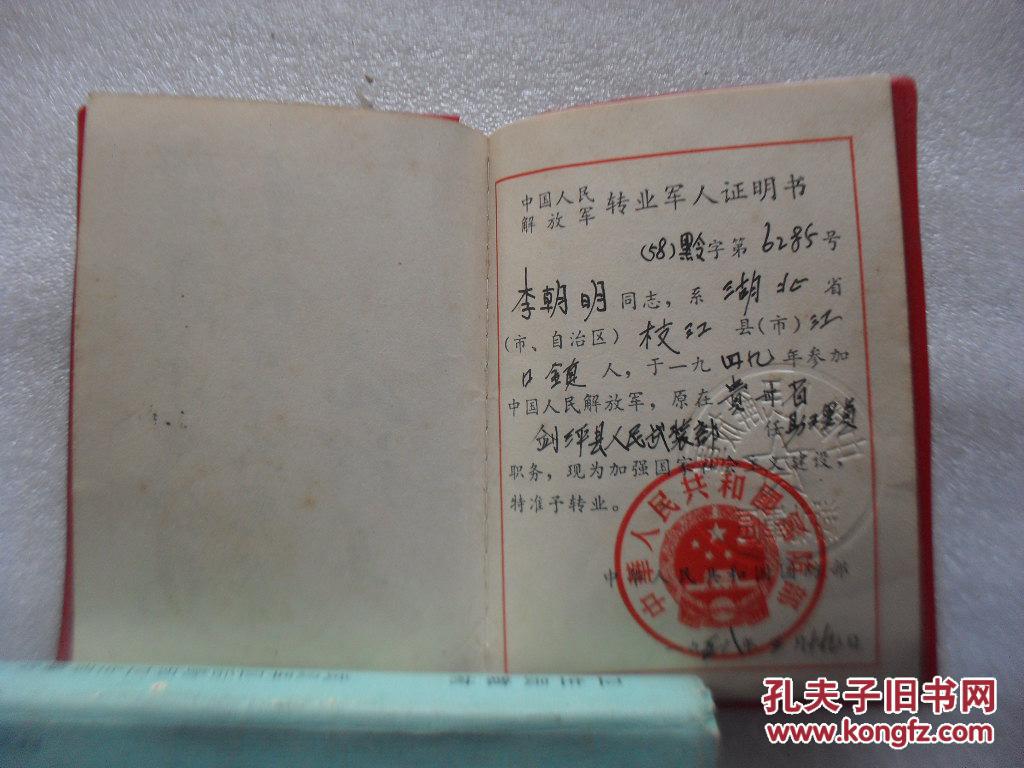 中国人民
解放军 转业军人证明书
(58)黔字第 6285 号
李朝明 同志，系 湖北 省
(市、自治区) 枝江 县(市) 江
口镇 人，于一九四九年参加
中国人民解放军，原在 贵州省
剑河县人民武装部 任助理员
职务，现为加强国家社会主义建设，
特准予转业。
中华人民共和国国防部
中華人民共和國國防部
孔夫子旧书网
www.kongfz.com